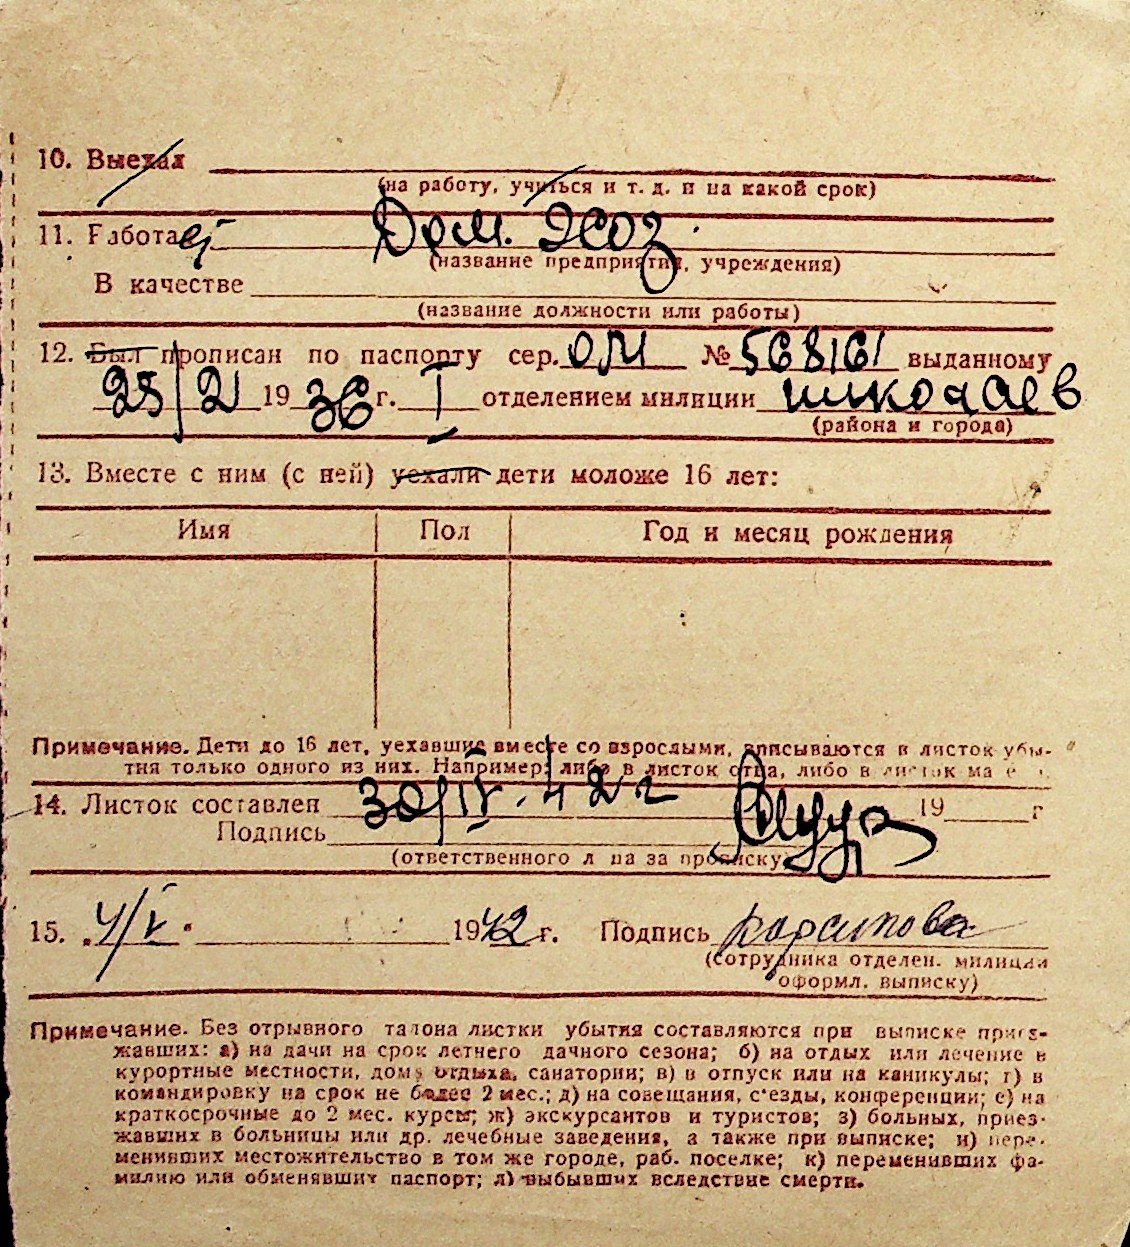 10. Выехал
(на работу, учиться и т. д. и на какой срок)
11. Работаеj Дом. Хоз.
(название предприятия, учреждения)
В качестве
(название должности или работы)
12. Был прописан по паспорту сер. ОМ № 568161 выданному
25/21 1936 г. I отделением милиции николаев
(района и города)
13. Вместе с ним (с ней) уехали дети моложе 16 лет:
Имя Пол Год и месяц рождения
Примечание. Дети до 16 лет, уехавшие вместе со взрослыми, вписываются в листок убы-
тия только одного из них. Например: либо в листок отца, либо в листок ма
14. Листок составлен 30/IV. 42 г 19 г
Подпись
(ответственного л ца за прописку)
15. „4/V" 1942 г. Подпись
(сотрудника отделен. милиции
оформл. выписку)
Примечание. Без отрывного талона листки убытия составляются при выписке приез-
жавших: а) на дачи на срок летнего дачного сезона; б) на отдых или лечение в
курортные местности, дома отдыха, санатории; в) в отпуск или на каникулы; г) в
командировку на срок не более 2 мес.; д) на совещания, с'езды, конференции; е) на
краткосрочные до 2 мес. курсы; ж) экскурсантов и туристов; з) больных, приез-
жавших в больницы или др. лечебные заведения, а также при выписке; и) пере-
менивших местожительство в том же городе, раб. поселке; к) переменивших фа-
милию или обменявших паспорт; л) выбывших вследствие смерти.